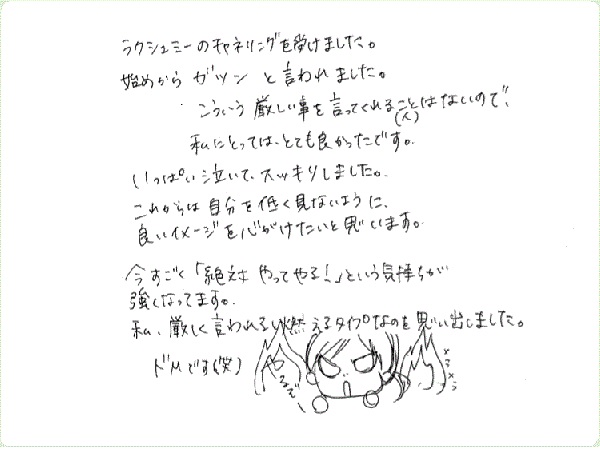 ラクシュミーのチャネリングを受けました。
始めから ガツン と言われました。
こういう厳しい事を言ってくれることはないので、
(人)
私にとっては、とても良かったです。
いっぱい泣いて、スッキリしました。
これからは自分を低く見ないように、
良いイメージを心がけたいと思います。
今すごく「絶対 やってやる!」という気持ちが
強くなってます。
私、厳しく言われると燃えるタイプなのを思い出しました。
ドMです(笑)
やるぞー
メラメラ